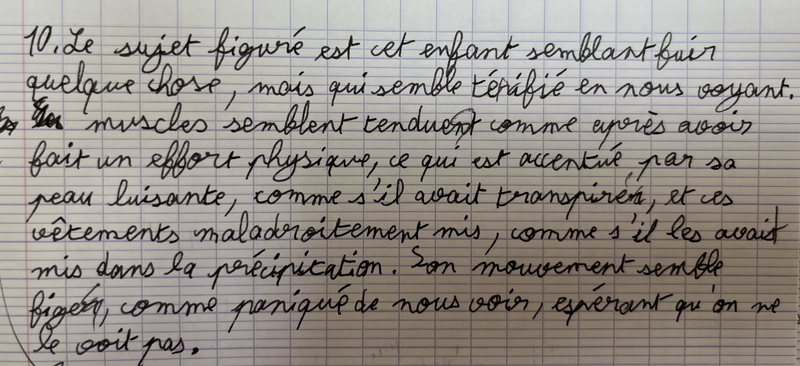 10. Le sujet figuré est cet enfant semblant fuir
quelque chose, mais qui semble térifié en nous voyant.
muscles semblent tendue comme après avoir
fait un effort physique, ce qui est accentué par sa
peau luisante, comme s'il avait transpiré, et ces
vêtements maladroitement mis, comme s'il les avait
mis dans la précipitation. Son mouvement semble
figé, comme paniqué de nous voir, espérant qu'on ne
le voit pas.